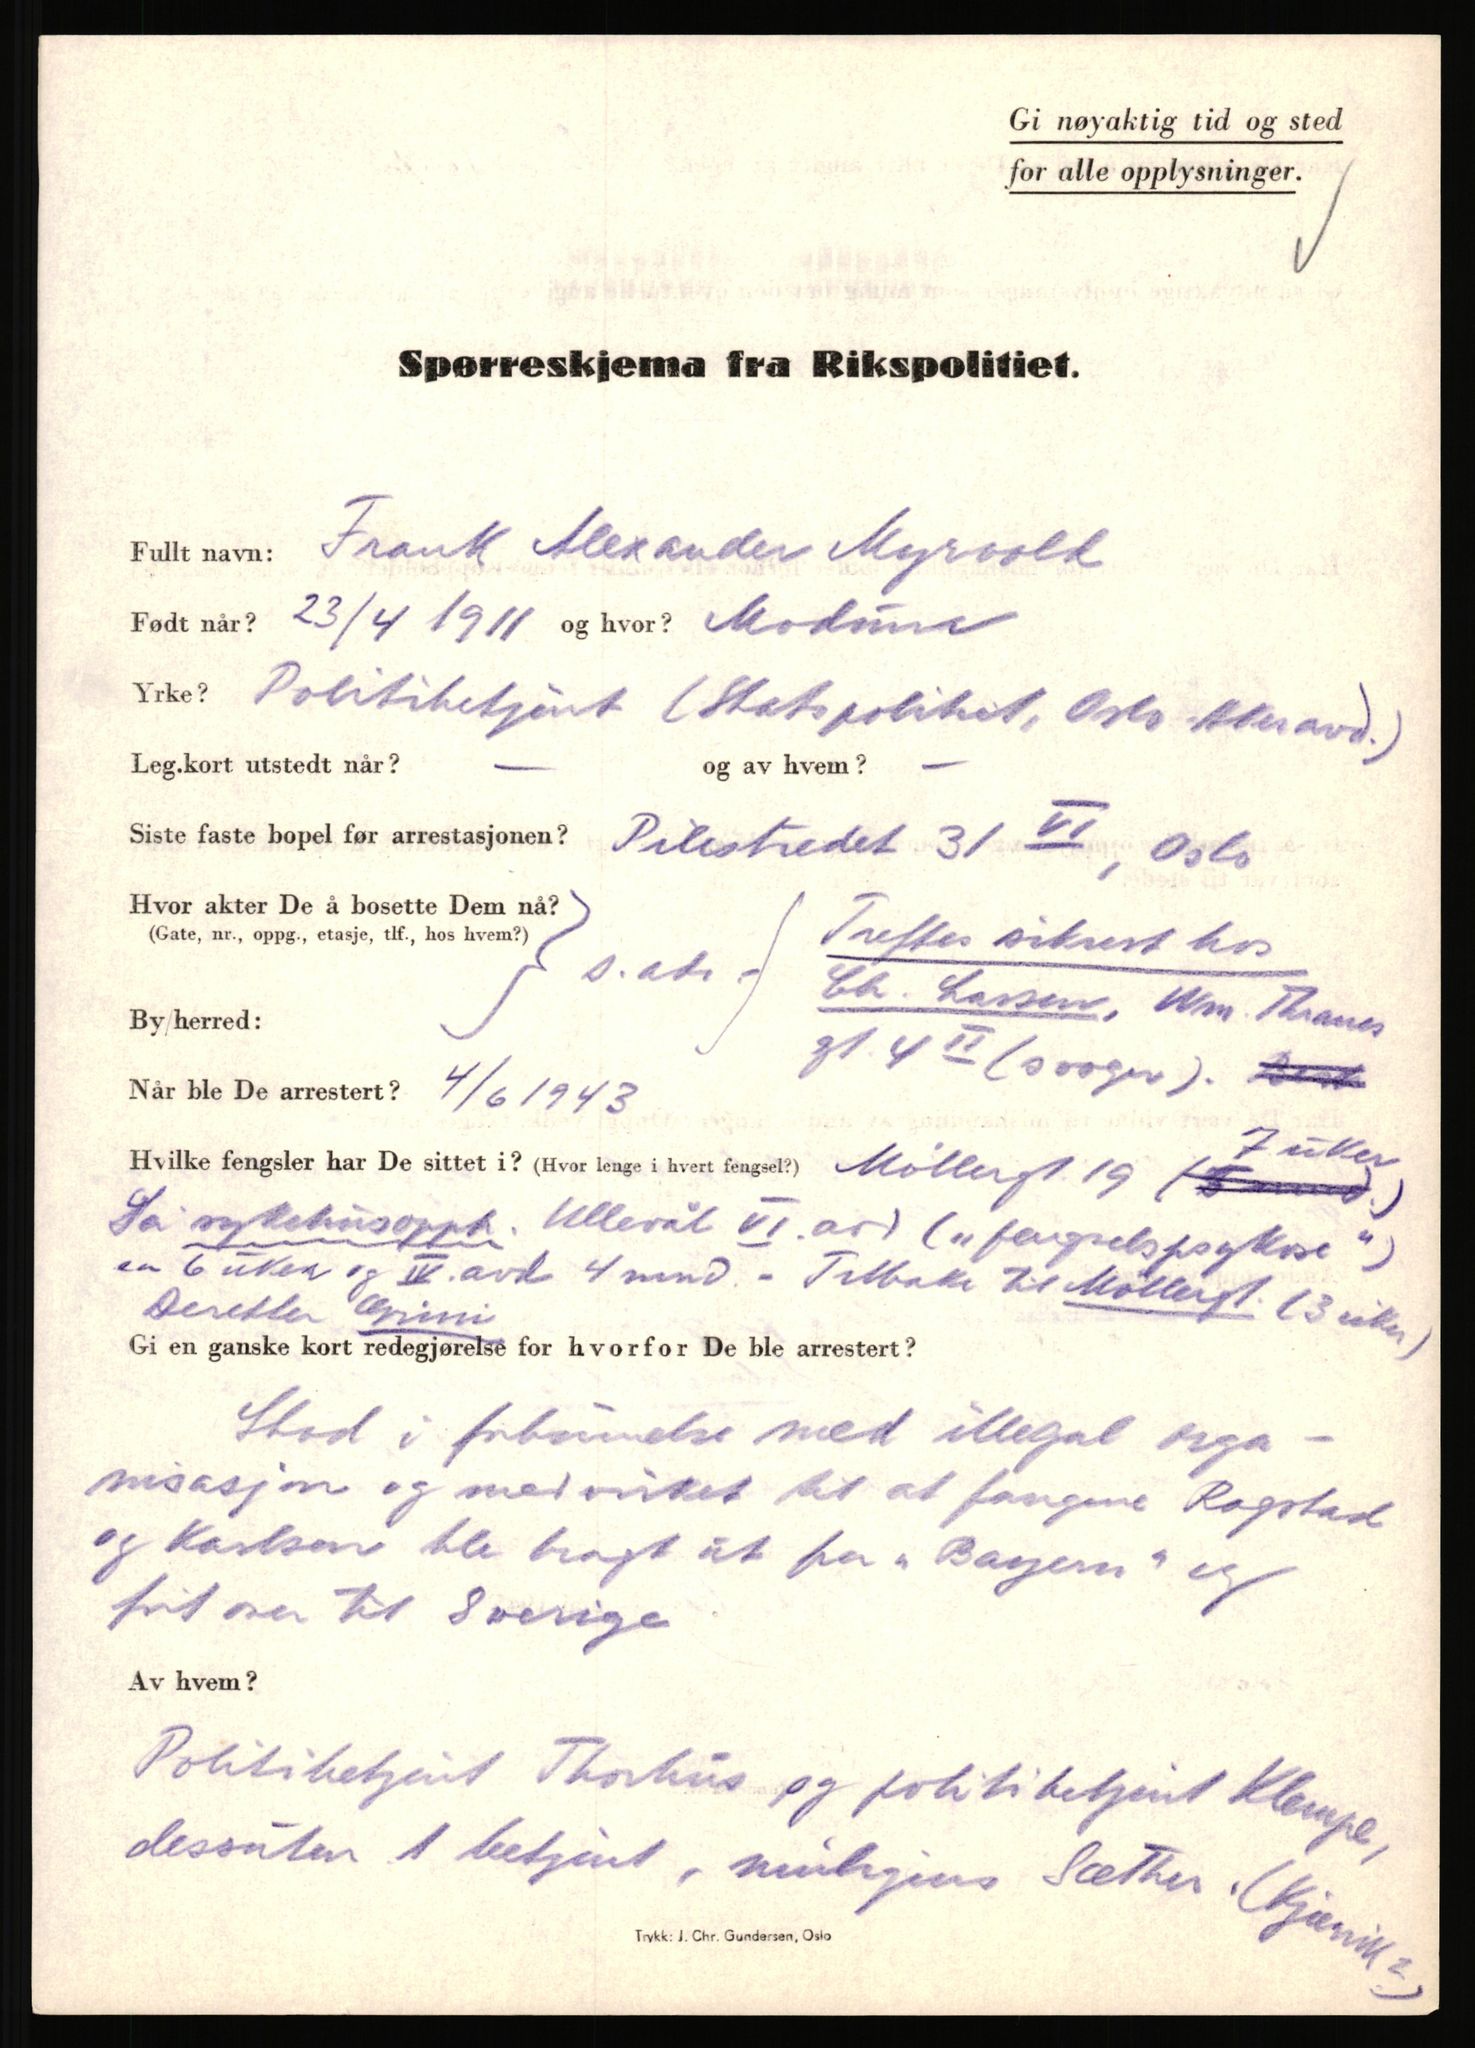 Gi nøyaktig tid og sted
for alle opplysninger.
Spørreskjema fra Rikspolitiet.
Fullt navn: Frank Alexander Myrvold
Født når? 23/4 1911 og hvor? Modum
Yrke? Politibetjent (Statspolitiet, Oslo Akeravd.)
Leg.kort utstedt når? — og av hvem? —
Siste faste bopel før arrestasjonen? Pilestredet 31 VI, Oslo
Hvor akter De å bosette Dem nå?
(Gate, nr., oppg., etasje, tlf., hos hvem?)
s. adr. -
Treffes sikrest hos
Chr. Larsen, Wm. Thranes
gt. 4 II (svoger).
By/herred:
Når ble De arrestert? 4/6 1943
Hvilke fengsler har De sittet i? (Hvor lenge i hvert fengsel?) Møllergt. 19 (7 uker)
Så sykehusopph. Ullevål VI. avd („fengselspsykose")
en 6 uker og IV. avd 4 mnd. - Tilbake til Møllergt. (3 uker)
Deretter Grini
Gi en ganske kort redegjørelse for hvorfor De ble arrestert?
Stod i forbindelse med illegal orga-
nisasjon og medvirket til at fangene Rogstad
og Karlsen ble bragt ut fra „Bayern" og
ført over til Sverige
Av hvem?
Politibetjent Thorhus og politibetjent Klempe,
dessuten 1 betjent, muligens Sæther. (Kjærvik?)
Trykk: J. Chr. Gundersen, Oslo